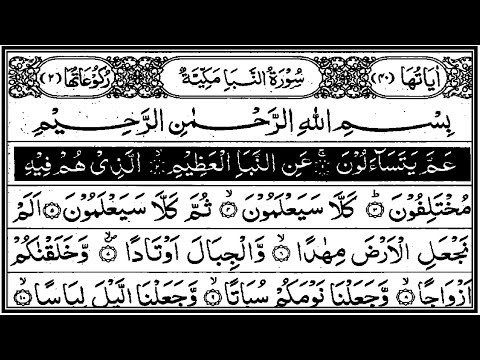 اٰيَاتُهَا (٤٠) سُوْرَةُ النَّبَاِ مَكِّيَّةٌ رُكُوْعَاتُهَا (٢)
بِسْمِ اللّٰهِ الرَّحْمٰنِ الرَّحِيْمِ
عَمَّ يَتَسَآءَلُوْنَ ۚ۝۱ عَنِ النَّبَاِ الْعَظِيْمِ ۙ۝۲ الَّذِىْ هُمْ فِيْهِ
مُخْتَلِفُوْنَ ؕ۝۳ كَلَّا سَيَعْلَمُوْنَ ۙ۝۴ ثُمَّ كَلَّا سَيَعْلَمُوْنَ ۝۵ اَلَمْ
نَجْعَلِ الْاَرْضَ مِهٰدًا ۙ۝۶ وَّالْجِبَالَ اَوْتَادًا ۪ۙ۝۷ وَّخَلَقْنٰكُمْ
اَزْوَاجًا ۙ۝۸ وَّجَعَلْنَا نَوْمَكُمْ سُبَاتًا ۙ۝۹ وَّجَعَلْنَا الَّيْلَ لِبَاسًا ۙ۝۱۰